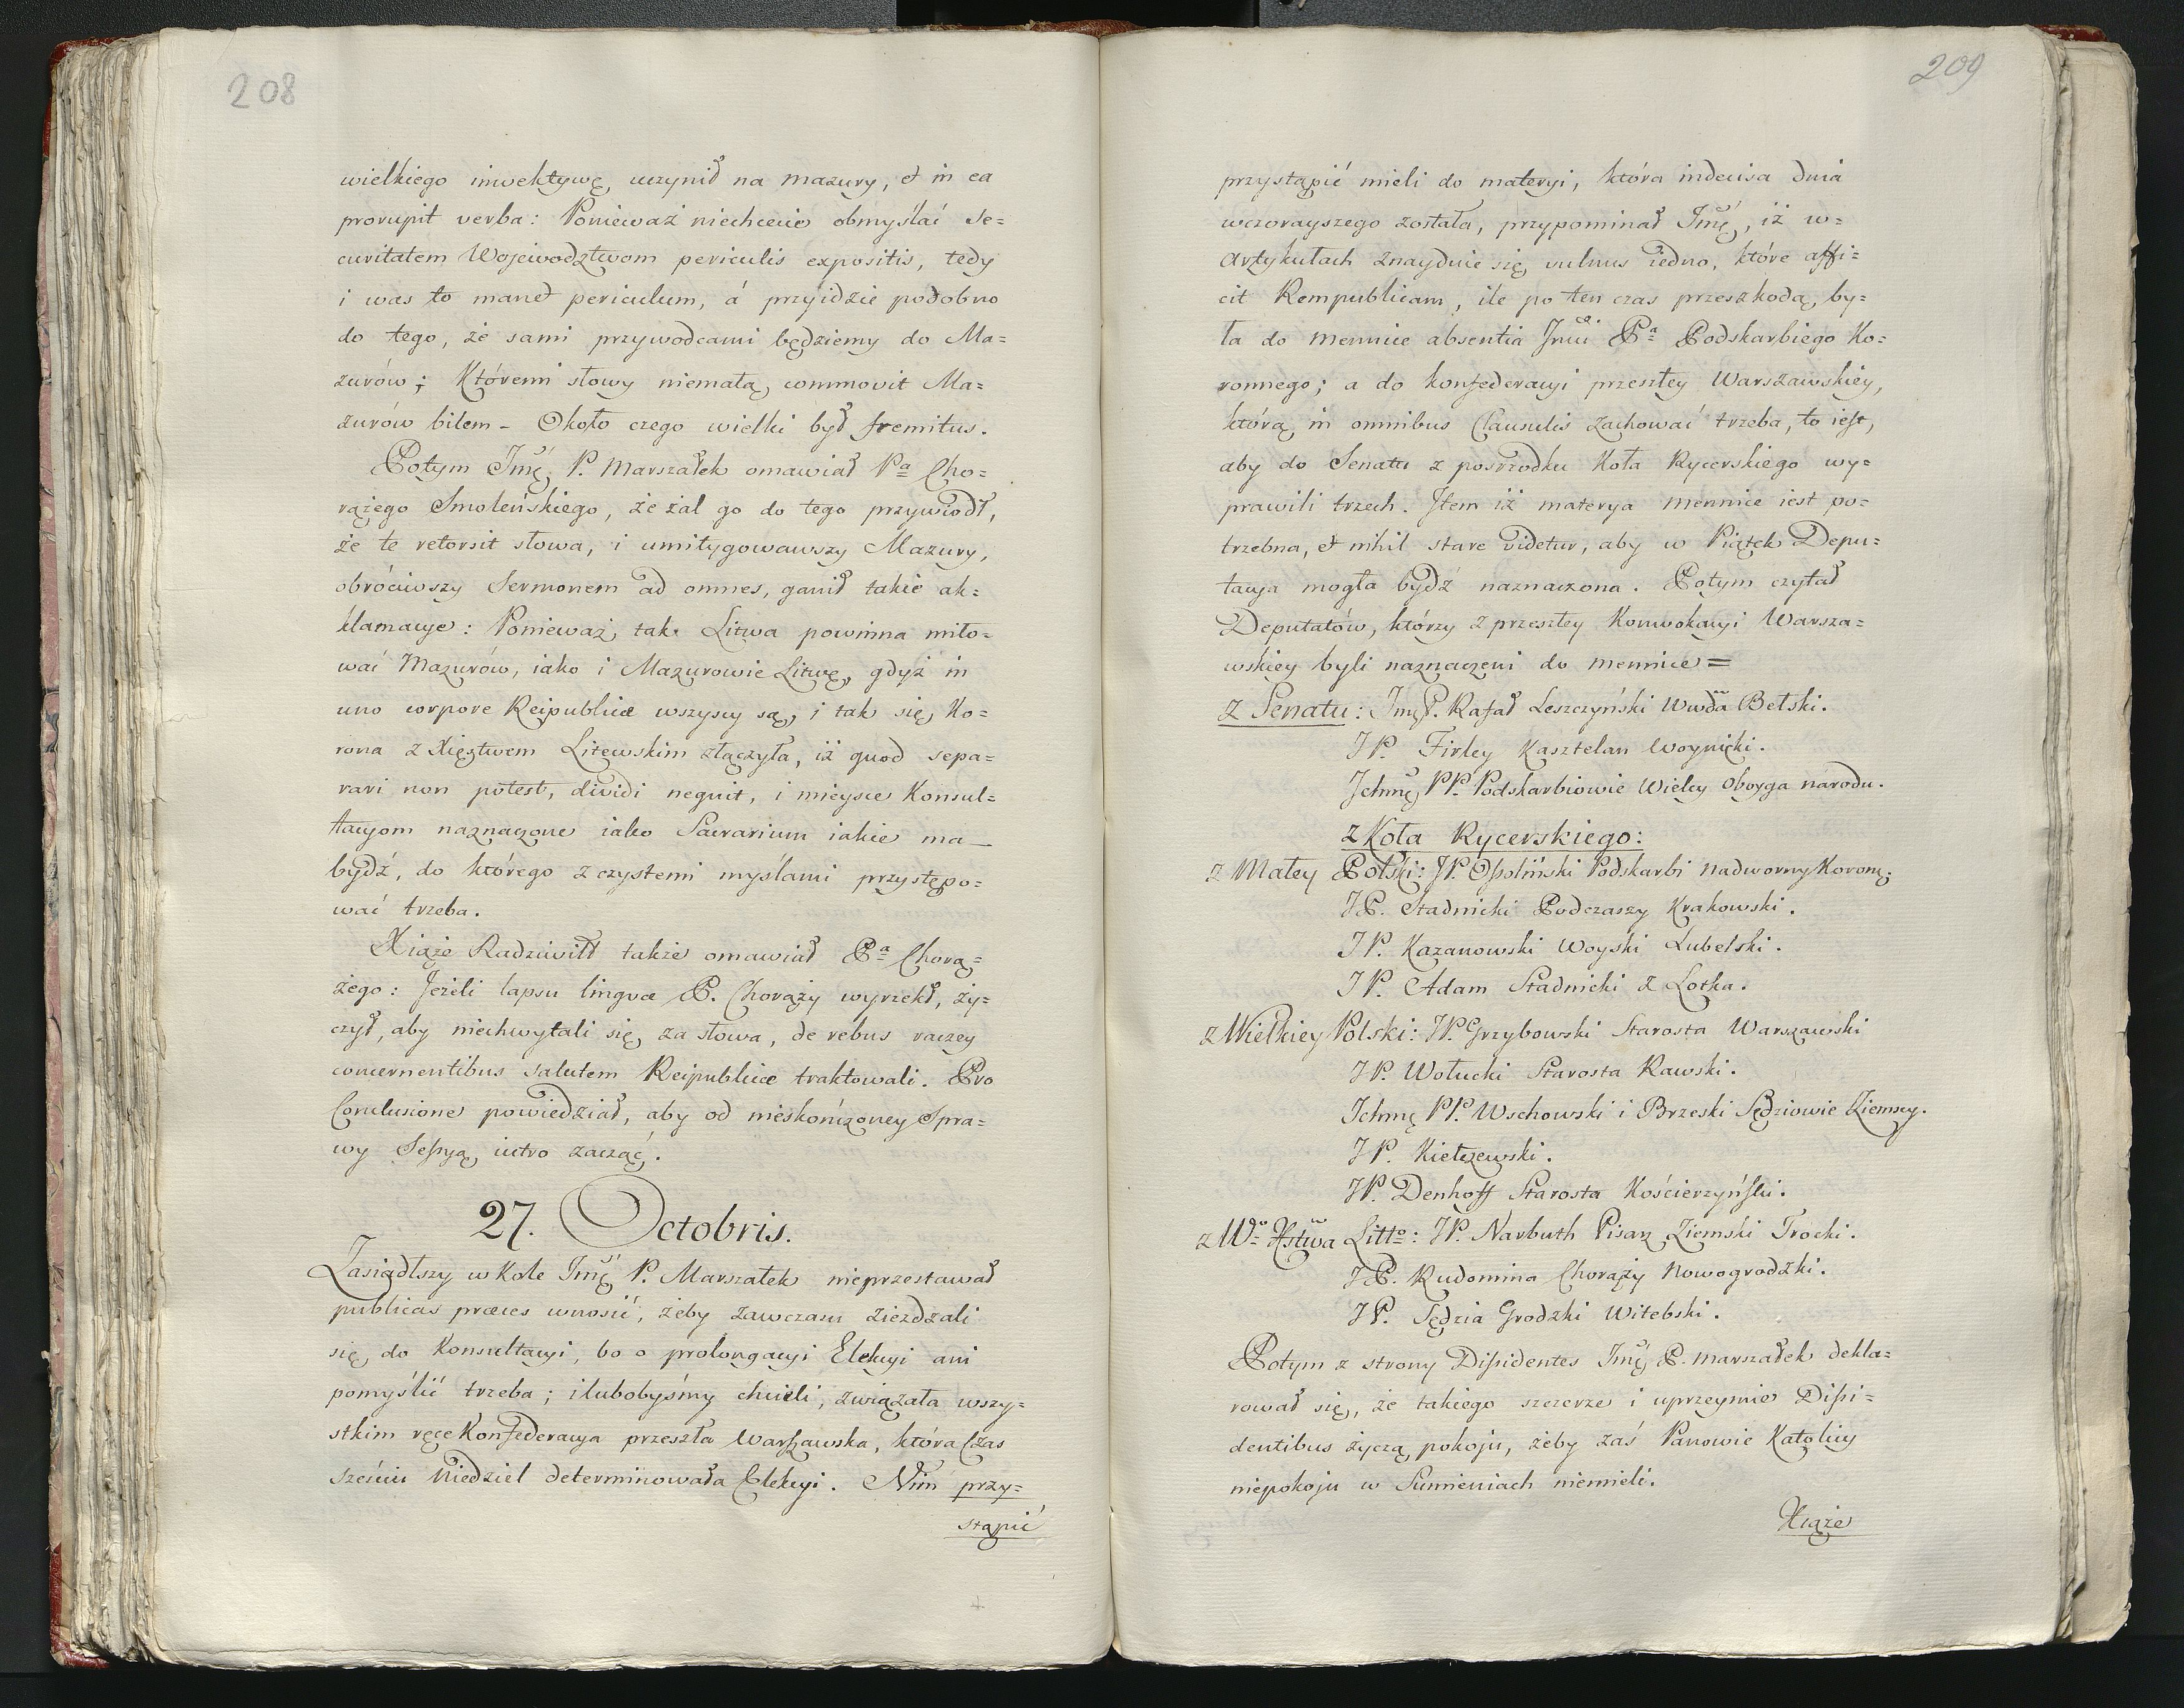 208
wielkiego inwektywę, uczynił na Mazury, et in ea
prorupit verba: Ponieważ niechcecie obmyślać Se=
curitatem Wojewodztwom periculis expositis, tedy
i was to manet periculum, á przyidzie podobno
do tego, że sami przywodcami będziemy do Ma=
zurów; Któremi słowy niemałą, commovit Ma=
zurów bilem - Około czego wielki był fremitus.
Potym Jmć P. Marszałek omawiał Pa Cho=
rążego Smoleńskiego, że żal go do tego przywiodł,
że te retorsit słowa, i umitygowawszy Mazury,
obróciwszy Sermonem ad omnes, ganił takie ak=
klamacye: Ponieważ, tak Litwa powinna miło=
wać Mazurów, iako i Mazurowie Litwę, gdyż in
uno corpore Reipublicæ wszyscy są, i tak się Ko=
rona z Xięztwem Litewskim złączyła, iż quod sepa=
rari non potest, dividi nequit, i mieysce Konsul=
tacyom naznaczone iako Sacrarium iakie ma
bydź, do którego z czystemi myślami przystępo=
wać trzeba.
Xiąże Radziwiłł także omawiał Pa Chorą=
żego: Jeżeli lapsu linguæ P. Chorąży wyrzekł, ży=
czył, aby niechwytali się za słowa, de rebus raczey
concernentibus salutem Reipublicæ traktowali. Pro
Conclusione powiedział, aby od nieskończoney Spra=
wy Sessyą iutro zacząć.
27. Octobris.
Zasiadłszy w Kole Jmć P. Marszałek nieprzestawał
publicas præces wnosić, żeby zawczasu ziezdzali
się do Konsultacyi, bo o prolongacyi Elekcyi ani
pomyślić trzeba; i lubobyśmy chcieli, związała wszy=
stkim ręce Konfederacya przeszła Warszawska, która Czas
sześciu Niedziel determinowała Elekcyi. Nim przy=
stąpić
209
przystąpić mieli do materyi, która indecisa dnia
wczorayszego została, przypominał Jmć, iż w=
Artykułach znayduie się vulnus iedno, które affi=
cit Rempublicam, ile po ten czas przeszkodą by=
ła do mennice absentia Jmci Pa Podskarbiego Ko=
ronnego; a do konfederacyi przeszłey Warszawskiey,
którą in omnibus Clausulis zachować trzeba, to iest,
aby do Senatu z pośrzodku Koła Rycerskiego wy=
prawili trzech. Item iż materya mennice iest po=
trzebna, et nihil stare videtur, aby w Piątek Depu=
tacya mogła bydź naznaczona. Potym czytał
Deputatów, którzy z przeszłey Konwokacyi Warsza=
wskiey byli naznaczeni do mennice=
z Senatu: Jmć P. Rafał Leszczyński Wwda Bełski.
JP. Firley Kasztelan Woynicki.
Jchmć PP. Podskarbiowie Wielcy Oboyga narodu.
z Koła Rycerskiego:
z Małey Polski: JP. Ossoliński Podskarbi Nadworny Koronny.
JP. Stadnicki Podczaszy Krakowski.
JP. Kazanowski Woyski Lubelski.
JP. Adam Stadnicki z Leska.
z Wielkiey Polski: JP. Grzybowski Starosta Warszawski
JP. Wołucki Starosta Rawski.
Jchmć PP. Wschowski i Brzeski Sędziowie Ziemscy.
JP. Kiełczewski.
JP. Denhoff Starosta Kościerzyński.
z Wo Xstwa Litto: JP. Narbuth Pisarz Ziemski Trocki.
JP. Rudomina Chorąży Nowogrodzki.
JP. Sędzia Grodzki Witebski.
Potym z strony Dissidentes Jmć P. Marszałek dekla=
rował się, że takiego szczerze i uprzeymie Dissi=
dentibus życzą pokoju, żeby zaś Panowie Katolicy
niepokoju w Sumieniach niemieli.
Xiąże